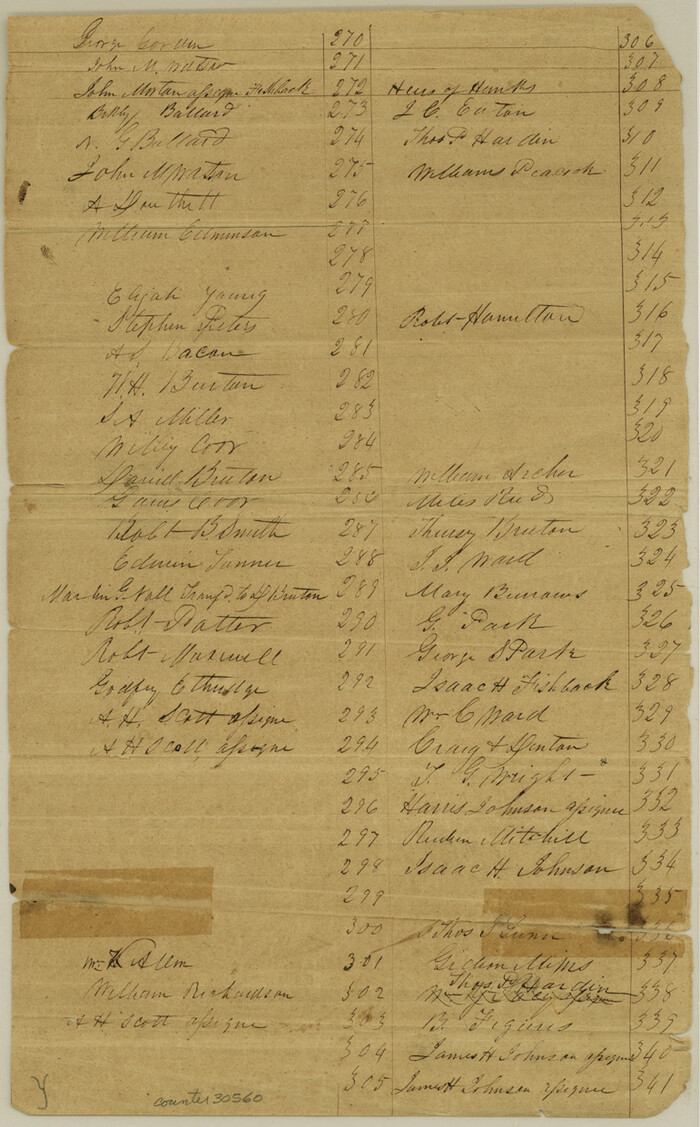 George Corden 270 306
John M. Watson 271 307
John Morton assignee Fishback 272 Heirs of Hanks 308
Berkly Ballard 273 J. C. Eaton 309
N. G Ballard 274 Thos P Hardin 310
John M Watson 275 Williams Peacock 311
A Douthett 276 312
William Cumminson 277 313
278 314
Elijah Young 279 315
Stephen Peters 280 Robt Hamilton 316
A S. Bacon 281 317
W. H. Burton 282 318
S A Miller 283 319
Wiley Coor 284 320
David Bruton 285 William Archer 321
Gaius Coor 286 Miles Reed 322
Robt B Smith 287 Thursy Bruton 323
Edwin Tanner 288 T. J. Ward 324
Martin G. Nall Transfd. to D Bruton 289 Mary Burrows 325
Robt Potter 290 G. Park 326
Robt Maxwell 291 George S Park 327
Godfrey Ethridge 292 Isaac H Fishback 328
A. H. Scott assignee 293 Wm C Ward 329
A H Scott assignee 294 Craig & Denton 330
295 T. G. Wright 331
296 Harris Johnson assignee 332
297 Reuben Mitchill 333
298 Isaac H. Johnson 334
299 335
300 Thos S Gunn 336
Wm Allen 301 Gideon Mims 337
William Richardson 302 Thos P Hardin 338
A H Scott assignee 303 B. Figures 339
304 James H Johnson assignee 340
305 James H Johnson assignee 341
counter 30560